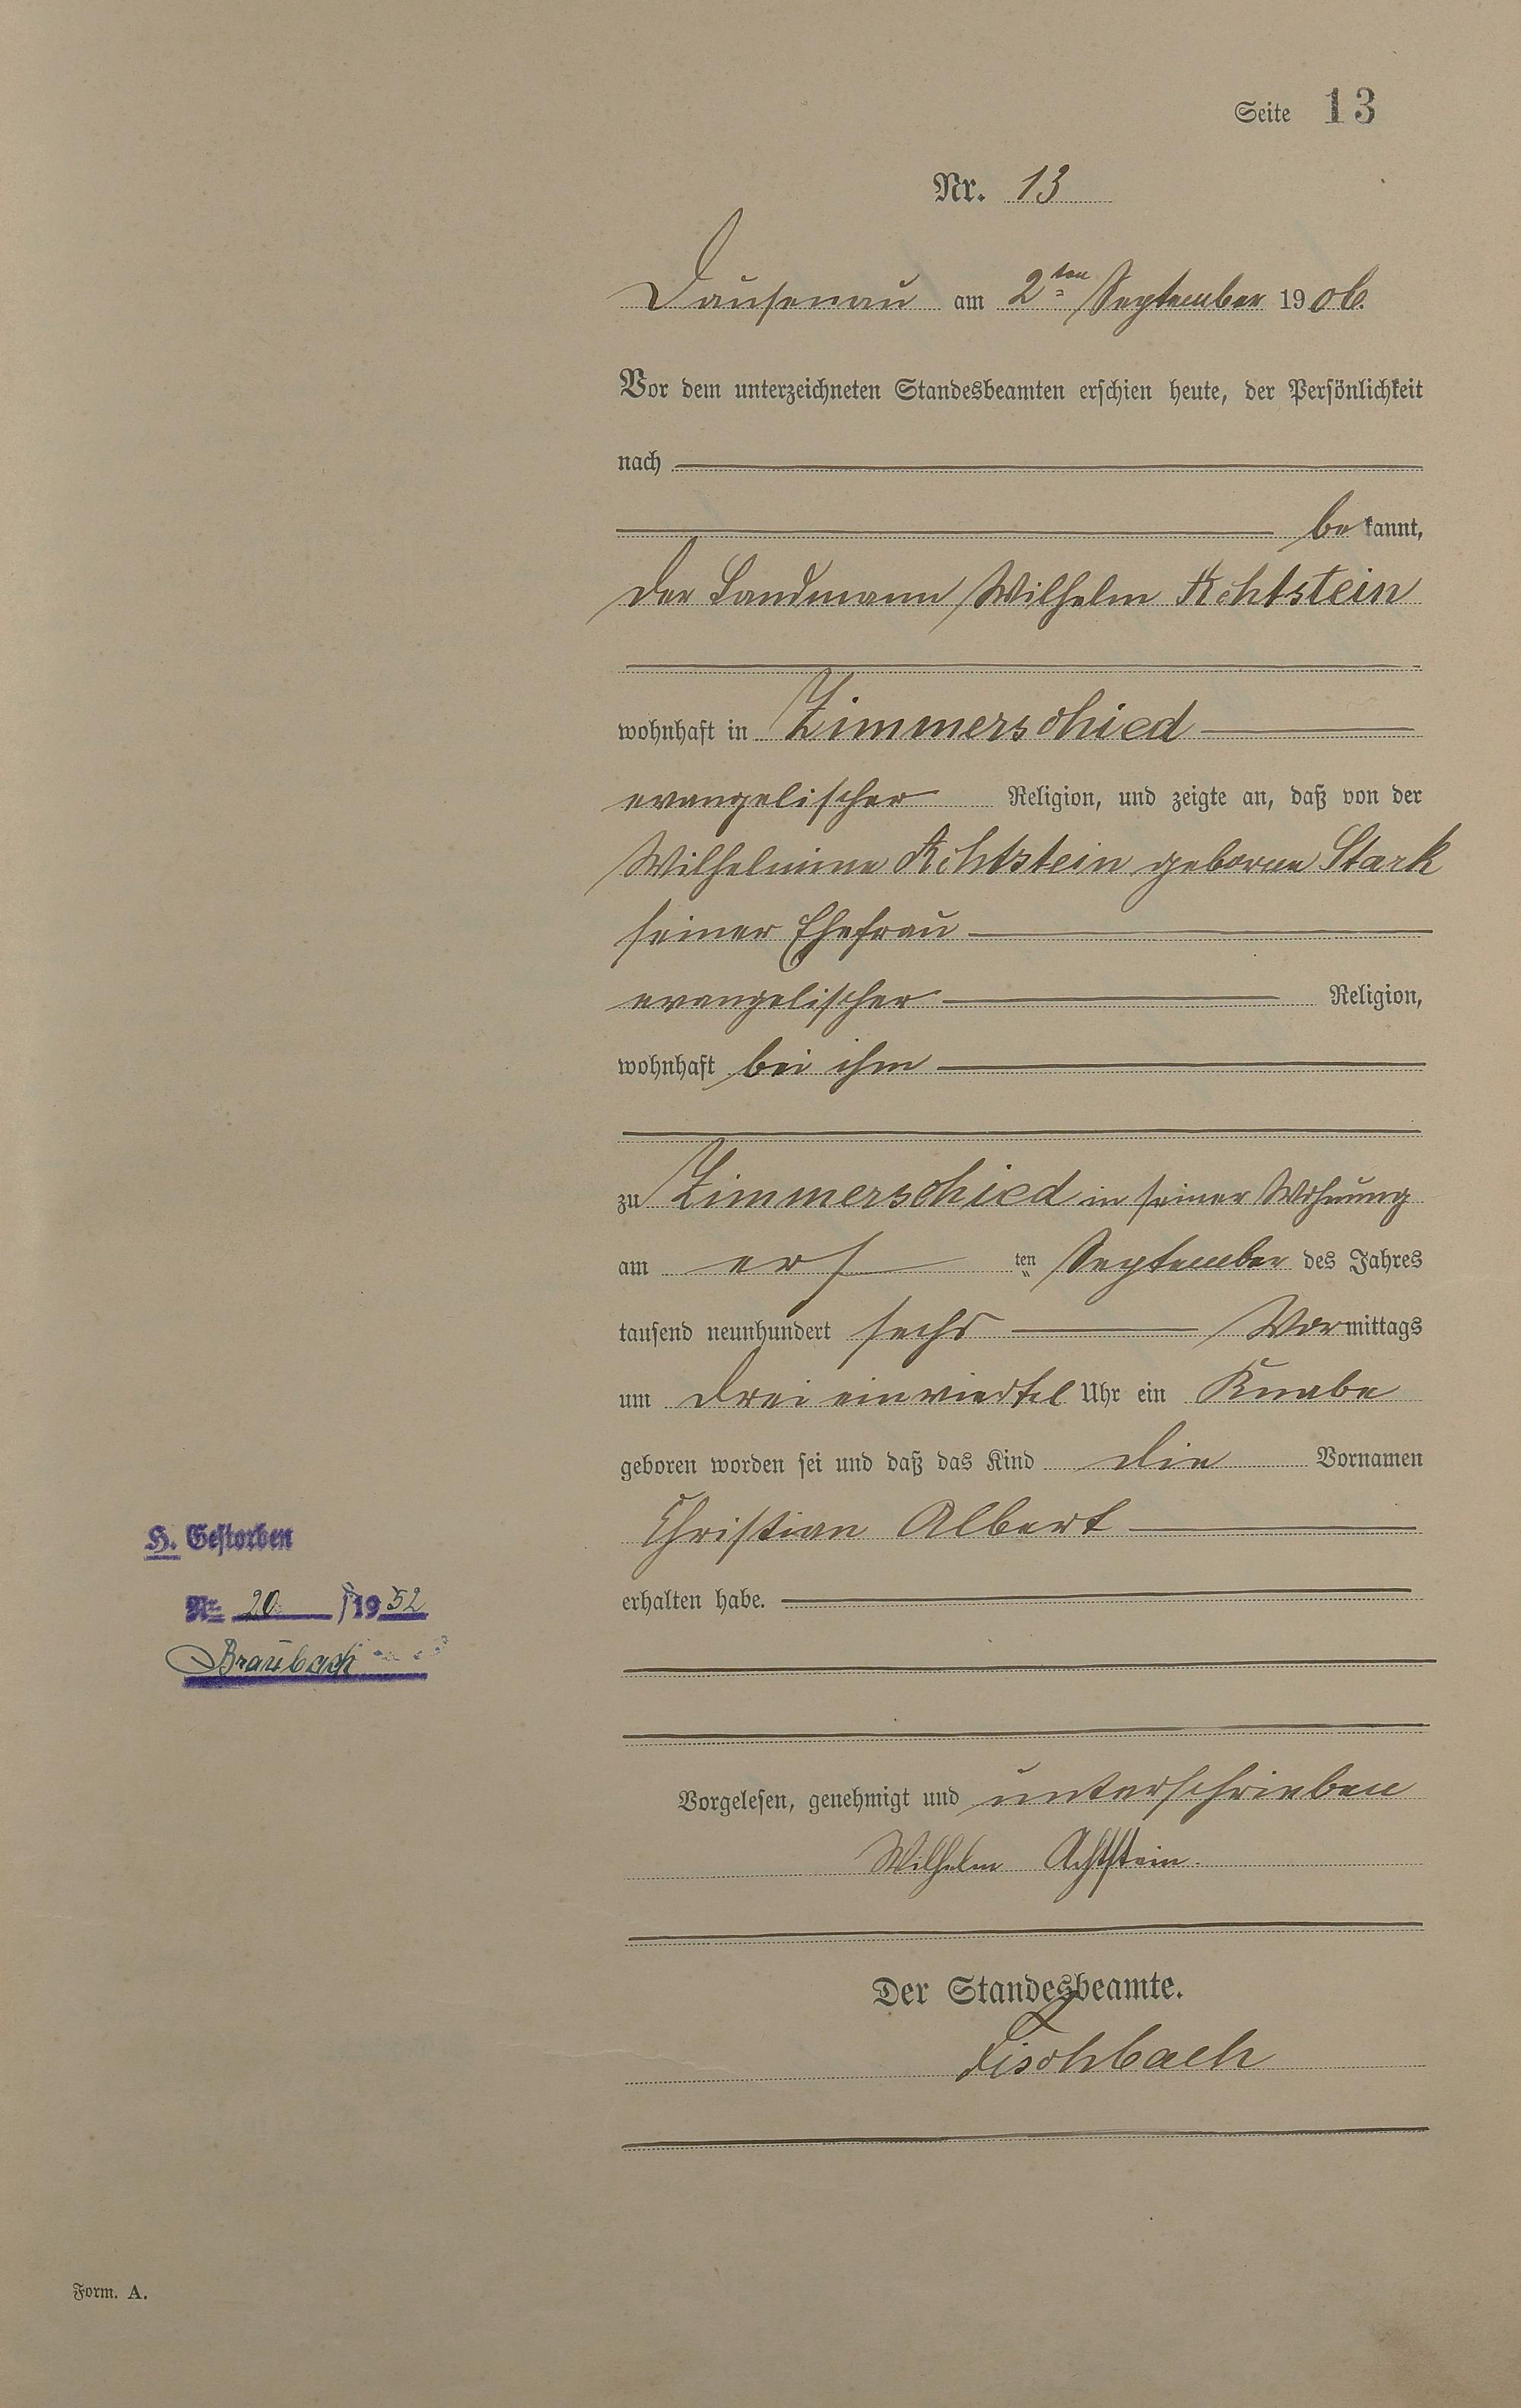 Seite 13
Nr. 13
Dausenau am 2ten September 1906.
Vor dem unterzeichneten Standesbeamten erschien heute, der Persönlichkeit
nach
bekannt,
der Landmann Wilhelm Achtstein
wohnhaft in Zimmerschied
evangelischer Religion, und zeigte an, daß von der
Wilhelmine Achtstein geborne Stark
seiner Ehefrau
evangelischer Religion,
wohnhaft bei ihm
zu Zimmerschied in seiner Wohnung
am ersten September des Jahres
tausend neunhundert sechs Vormittags
um drei einviertel Uhr ein Knabe
geboren worden sei und daß das Kind die Vornamen
Christian Albert
erhalten habe.
H. Gestorben
Nr. 20 / 1952
Braubach
Vorgelesen, genehmigt und unterschrieben
Wilhelm Achtstein.
Der Standesbeamte.
Fischbach
Form. A.